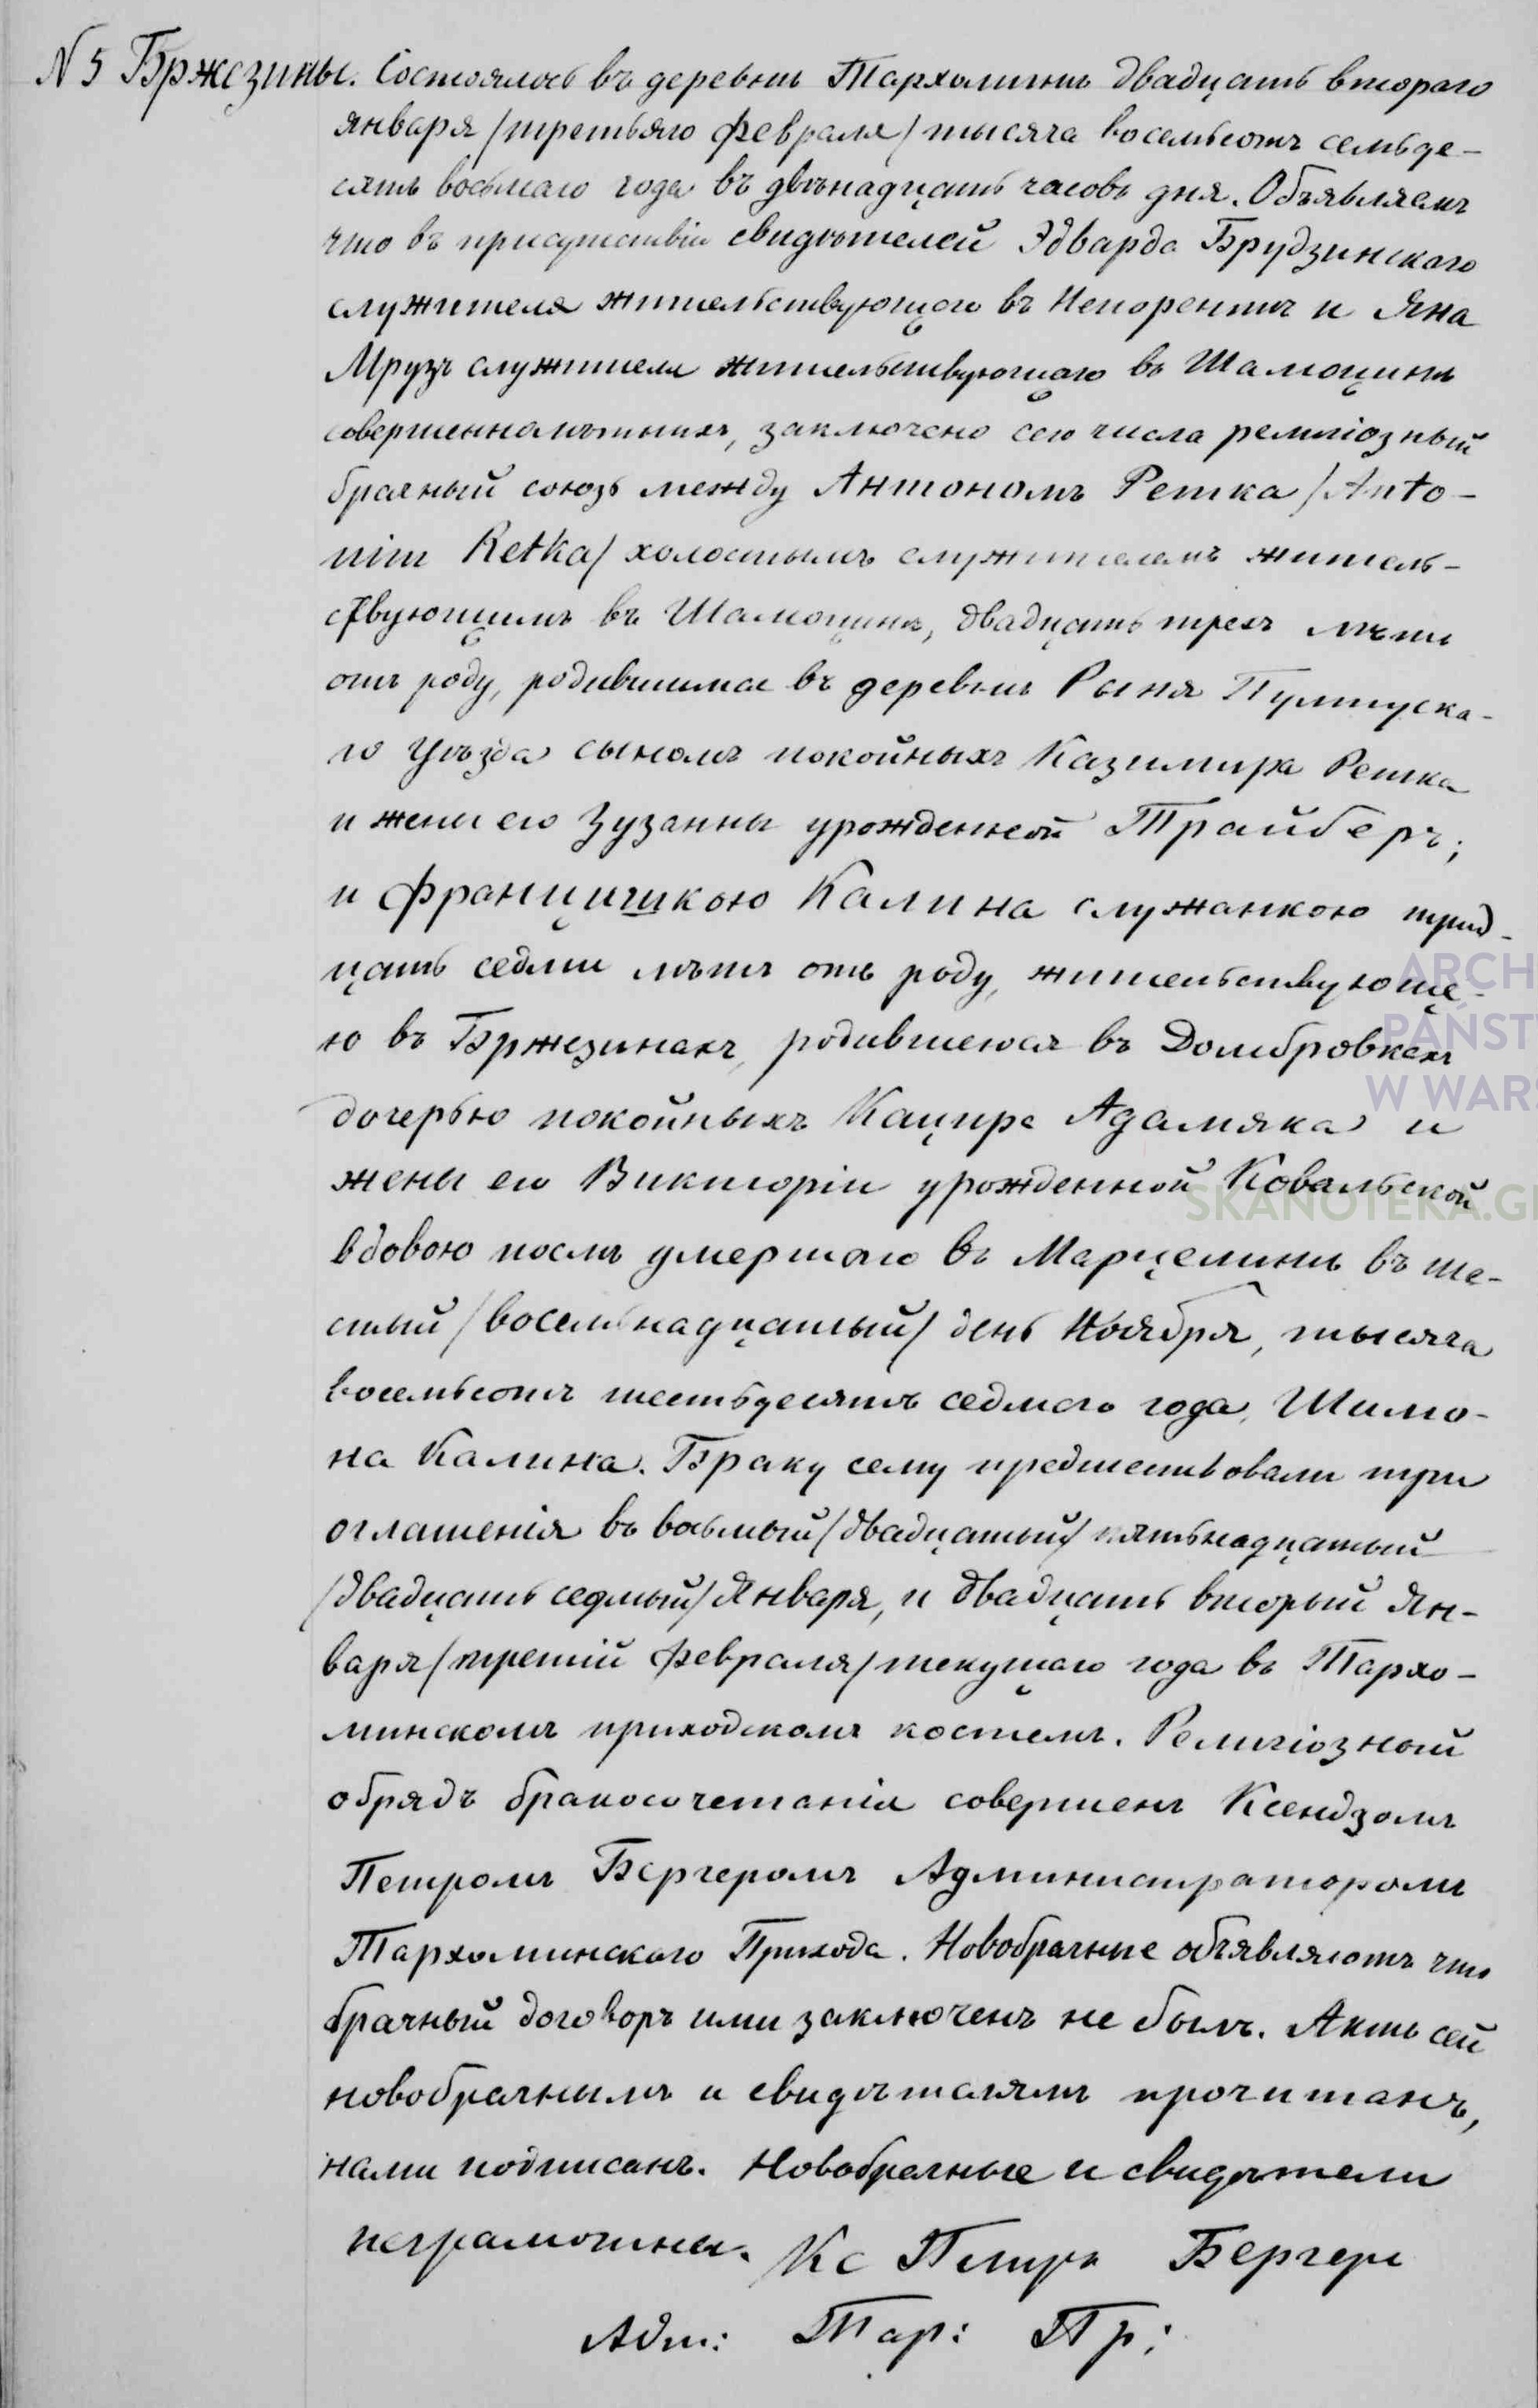 N 5 Бржезины. Состоялось въ деревнѣ Тархоминѣ двадцать втораго
января /третьяго февраля/ тысяча восемьсотъ семьде-
сятъ восьмаго года въ двѣнадцать часовъ дня. Объявляемъ
что въ присутствіи свидѣтелей Эдварда Брудзинскаго
служителя жительствующаго въ Непорентѣ и Яна
Мрузъ служителя жительствующаго въ Шамоцинѣ
совершеннолѣтнихъ, заключено сего числа религіозный
брачный союзъ между Антономъ Ретка /Anto-
nim Retka/ холостымъ служителемъ житель-
ствующимъ въ Шамоцинѣ, двадцать трехъ лѣтъ
отъ роду, родившимся въ деревнѣ Рыня Пултуска-
го Уѣзда сыномъ покойныхъ Казимира Ретка
и жены его Зузанны урожденной Трайберъ;
и Францишкою Калина служанкою трид-
цать седми лѣтъ отъ роду, жительствующе-
ю въ Бржезинахъ, родившеюся въ Домбровкахъ
дочерью покойныхъ Кацпра Адамяка и
жены его Викторіи урожденной Ковальской
вдовою послѣ умершаго въ Марцелинѣ въ ше-
стый /восемнадцатый/ день Ноября, тысяча
восемьсотъ шестьдесятъ седмаго года, Шимо-
на Калина. Браку сему предшествовали три
оглашенія въ восьмый /двадцатый/ пятьнадцатый
/двадцать седмый/ Января, и двадцать вторый Ян-
варя /третій февраля/ текущаго года въ Тархо-
минскомъ приходскомъ костелѣ. Религіозный
обрядъ бракосочетанія совершенъ Ксендзомъ
Петромъ Бергеромъ Администраторомъ
Тархоминскаго Прихода. Новобрачные объявляютъ что
брачный договоръ ими заключенъ не былъ. Актъ сей
новобрачнымъ и свидѣтелямъ прочитанъ,
нами подписанъ. Новобрачные и свидѣтели
неграмотны. Кс Петръ Бергеръ
Адм: Тар: Пр:
ARCH
PAŃST
W WAR
SKANOTEKA.G